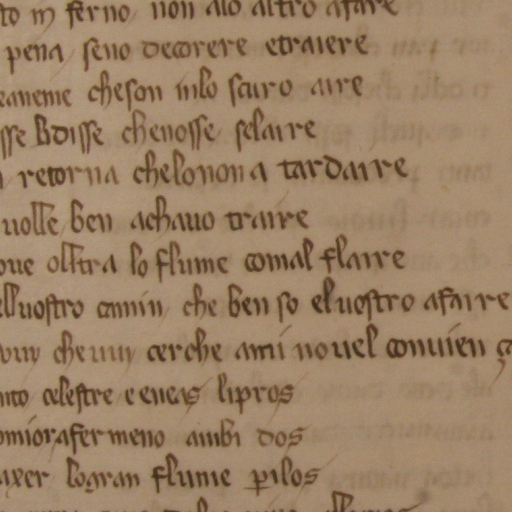 to in ferno, non alo altro afare
pena seno decorere etraiere
eaneme cheson inlo scuro aire
sse Bdisse chenosse selaire
retorna chelonon a tardaire
uolle ben achauo traire
oue olltra lo flume comal flaire
elluostro camin, che ben so eluostro afaire
che uuy cerche anti no uel conuien
nto celestre e eneas lipros
omior afer meno anbi dos
ixer logran flume p̱ilos